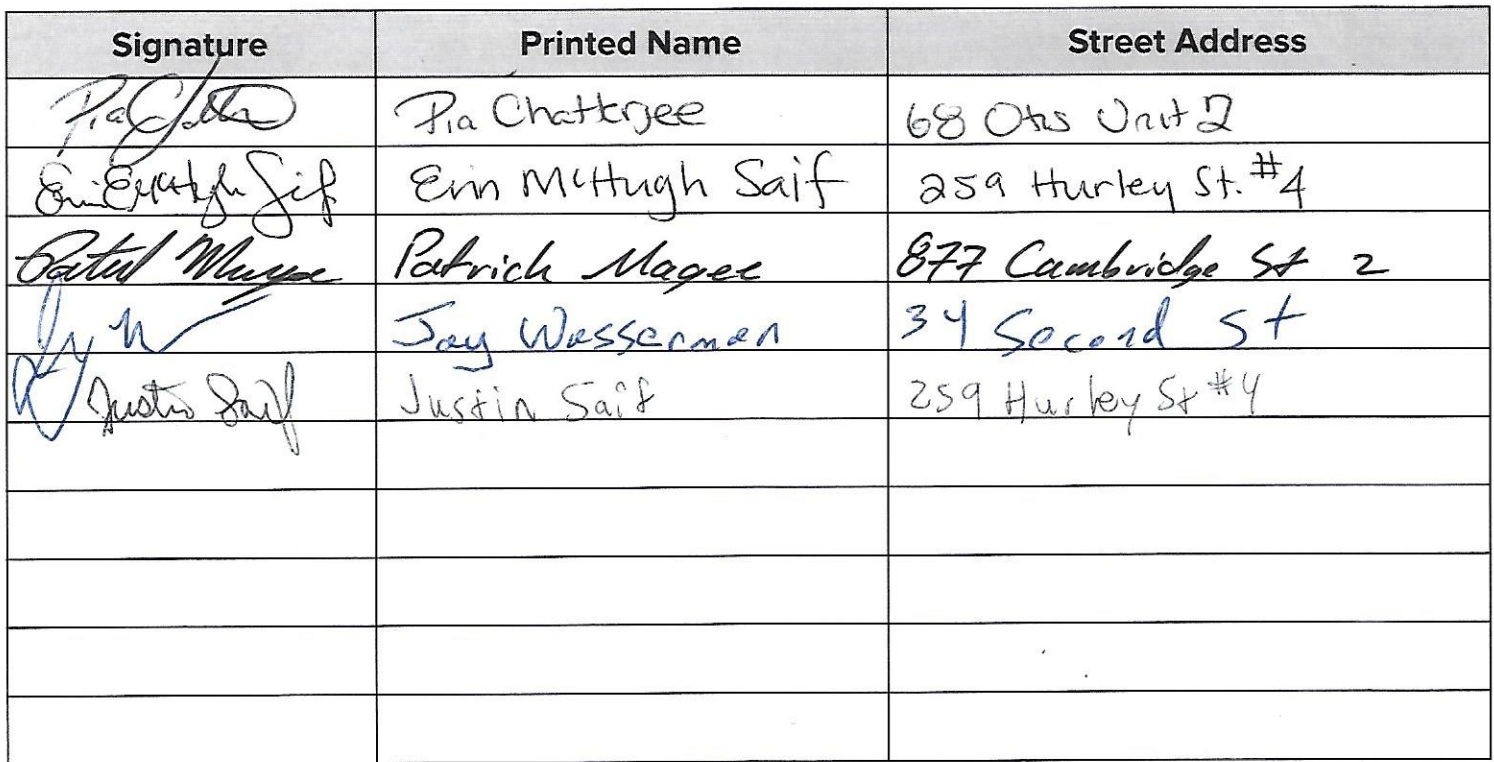 Signature Printed Name Street Address
Pia Chatterjee 68 Otis Unit 2
Erin McHugh Saif 259 Hurley St. #4
Patrick Magee 877 Cambridge St 2
Jay Wasserman 34 Second St
Justin Saif Justin Saif 259 Hurley St #4